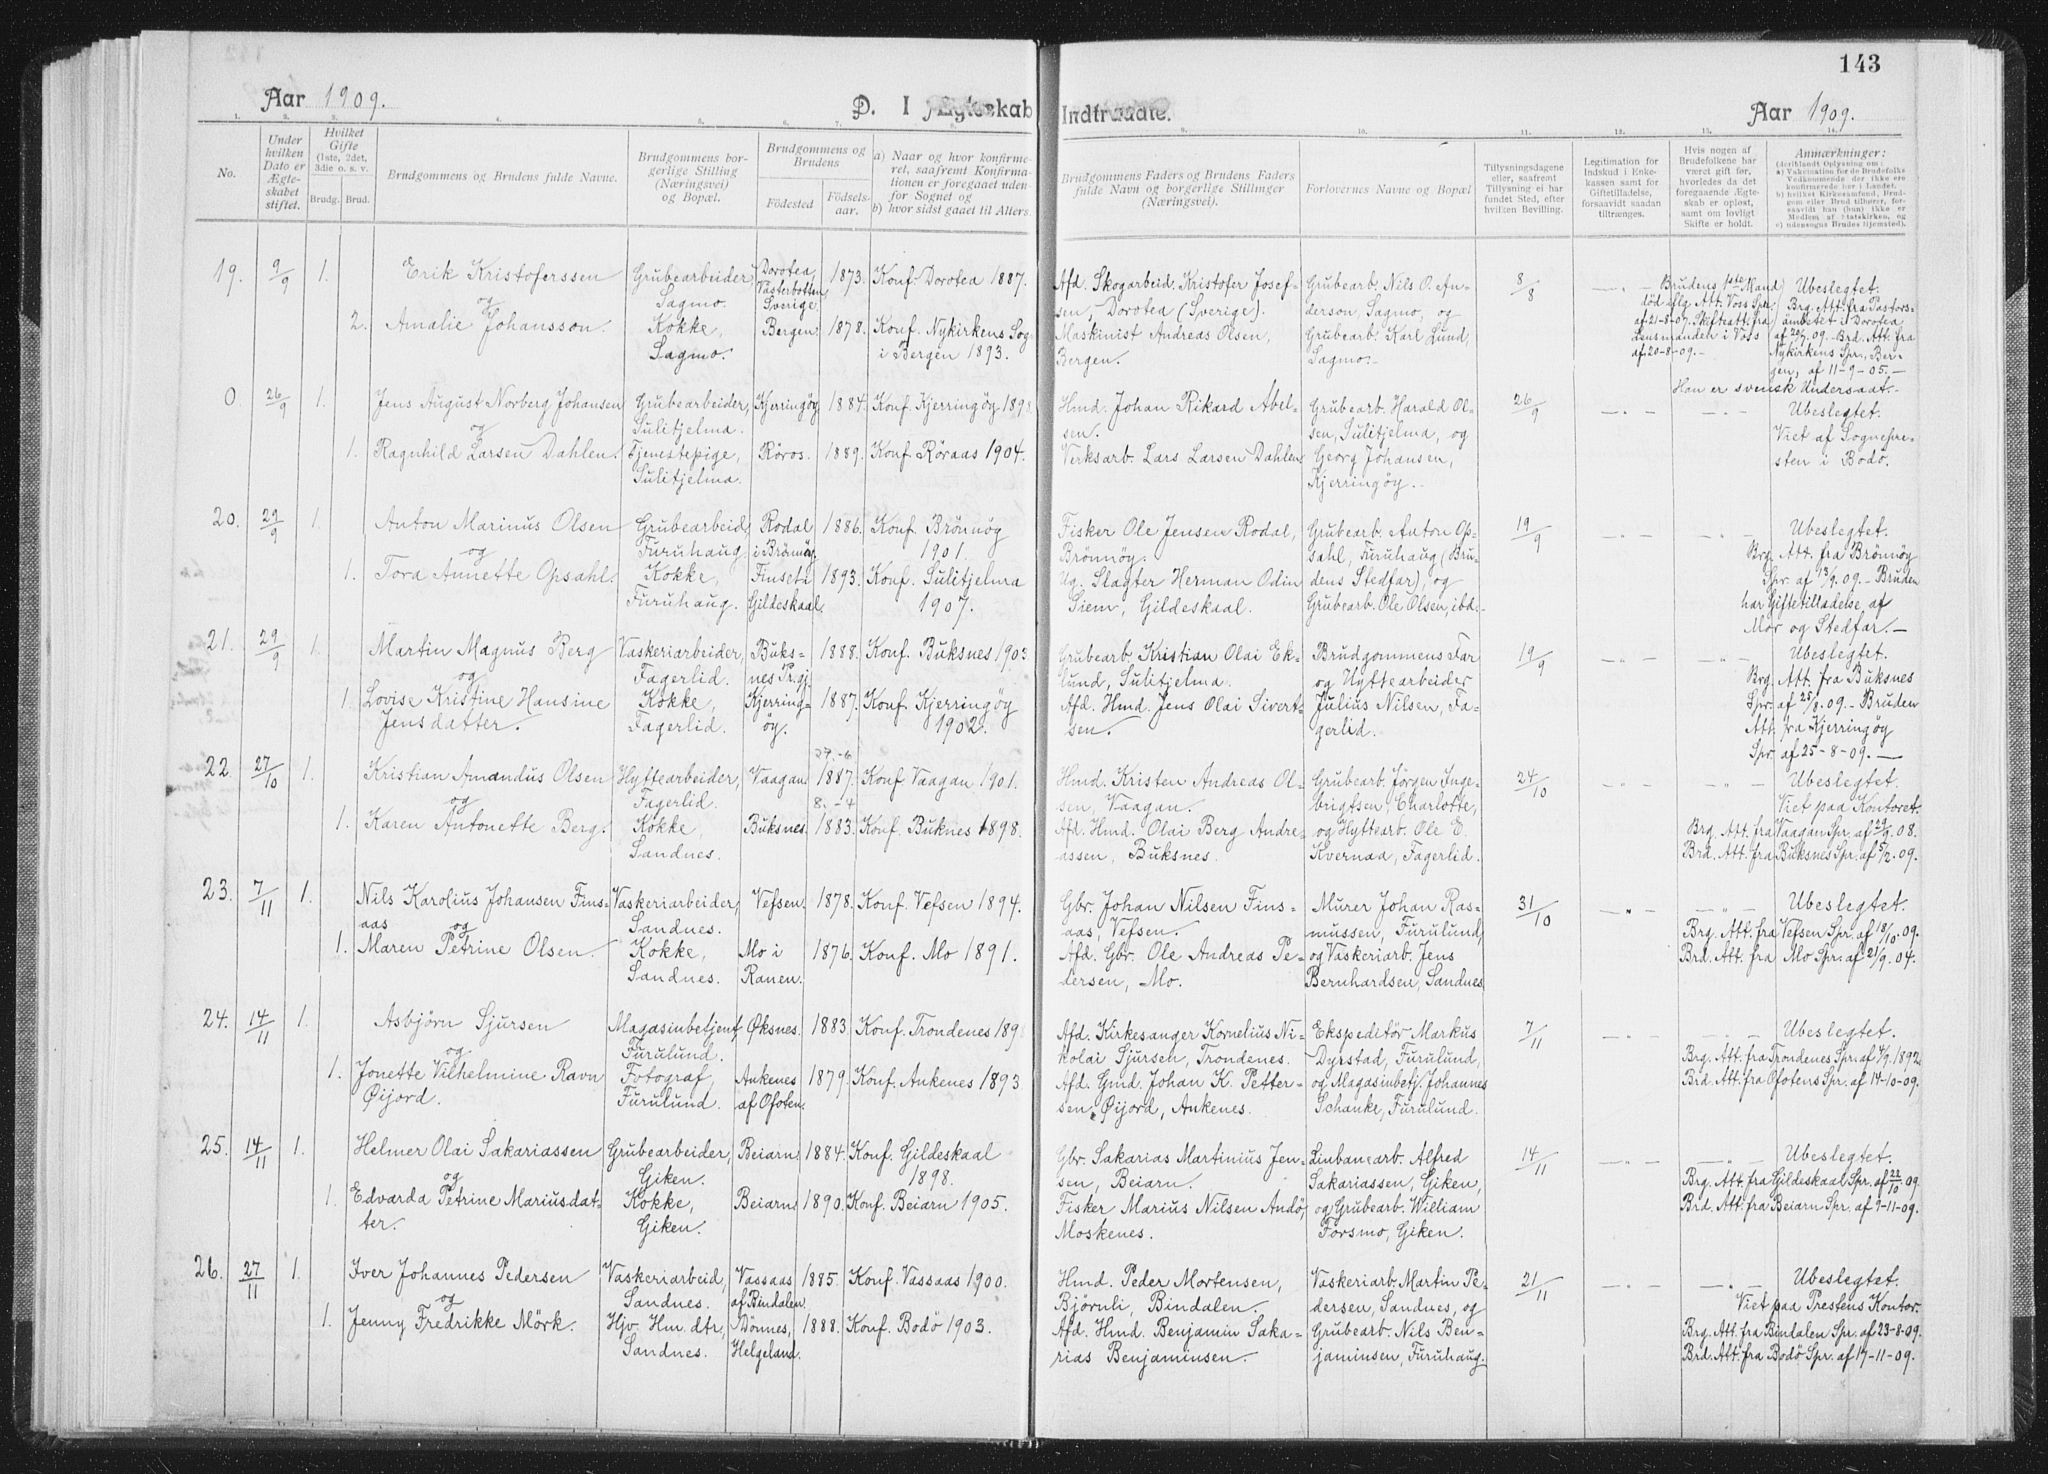 143
Aar 1909.
D. I Ægteskab Indtraadte.
Aar 1909.
1. 2. 3. 4. 5. 6. 7. 9. 10. 11. 12. 13. 14.
No.
Under
hvilken
Dato er
Ægte-
skabet
stiftet.
Hvilket
Gifte
(1ste, 2det,
3die o. s. v.
Brudg. Brud.
Brudgommens og Brudens fulde Navne.
Brudgommens bor-
gerlige Stilling
(Næringsvei)
og Bopæl.
Brudgommens og
Brudens
Födested
Födsels-
aar.
a) Naar og hvor konfirme-
ret, saafremt Konfirma-
tionen er foregaaet uden-
for Sognet og
b) hvor sidst gaaet til Alters.
Brudgommens Faders og Brudens Faders
fulde Navn og borgerlige Stillinger
(Næringsvei).
Forlovernes Navne og Bopæl
Tillysningsdagene
eller, saafremt
Tillysning ei har
fundet Sted, efter
hvilken Bevilling.
Legitimation for
Indskud i Enke-
kassen samt for
Giftetilladelse,
forsaavidt saadan
tiltrænges.
Hvis nogen af
Brudefolkene har
været gift før,
hvorledes da det
foregaaende Ægte-
skab er opløst,
samt om lovligt
Skifte er holdt.
Anmærkninger:
(deriblandt Oplysning om:
a) Vakcination for de Brudefolks
Vedkommende der ikke ere
konfirmerede her i Landet.
b) hvilket Kirkesamfund, Brud-
gom eller Brud tilhører, for-
saavidt han (hun) ikke er
Medlem af Statskirken, og
c) udensogns Brudes Hjemsted).
19. 9/9 1. Erik Kristoferssen
og
2. Amalie Johansson.
Grubearbeider,
Sagmo.
Kokke,
Sagmo.
Dorotea,
Vasterbotten
Sverige.
Bergen.
1873.
1878.
Konf. Dorotea 1887.
Konf. Nykirkens Sog
i Bergen 1893.
Afd. Skogarbeid. Kristofer Josef-
sen, Dorotea (Sverige).
Maskinist Andreas Olsen,
Bergen.
Grubearb. Nils O. An-
derson, Sagmo, og
Grubearb. Karl Lund,
Sagmo.-
8/8
Brudens 1ste Mand
död iflg. Att. Voss Spr.
af 21-8-07. Skifteatt. fra
Lensmanden i Voss
af 20-8-09.-
Ubeslegtet.
Brg. Att. fra Pastors-
ämbetet i Dorotea
af 20/7 09.- Brd. Att. fra
Nykirkens Spr., Ber-
gen, af 11-9-05.-
Han er svensk Undersaat.-
0. 26/9 1. Jens August Norberg Johansen
og
1. Ragnhild Larsen Dahlen.
Grubearbeider,
Sulitjelma.
Tjenestepige,
Sulitjelma.
Kjerringöy
Röros.
1884.
1889.
Konf. Kjerringöy 1898.
Konf. Röraas 1904.
Hmd. Johan Rikard Abel-
sen.
Verksarb. Lars Larsen Dahlen.
Grubearb. Harald Ol-
sen, Sulitjelma, og
Georg Johansen,
Kjerringöy.-
26/9
Ubeslegtet.
Viet af Sognepre-
sten i Bodö.
20. 29/9 1. Anton Marinus Olsen
og
1. Tora Annette Opsahl.
Grubearbeid,
Furuhaug.
Kokke,
Furuhaug.
Rodal
i Brönnöy.
Finseti
Gildeskaal.
1886.
1893.
Konf. Brönnöy
1901.
Konf. Sulitjelma
1907.
Fisker Ole Jensen Rodal,
Brönnöy.
Ug. Slagter Herman Odin
Siem, Gildeskaal.
Grubearb. Anton Op-
sahl, Furuhaug (Bru-
dens Stedfar), og
Grubearb. Ole Olsen, ibd.-
19/9
Ubeslegtet.
Brg. Att. fra Brönnöy
Spr. af 13/9. 09.- Bruden
har Giftetilladelse af
Mor og Stedfar.-
21. 29/9 1. Martin Magnus Berg
og
1. Lovise Kristine Hansine
Jensdatter.
Vaskeriarbeider,
Fagerlid.
Kokke,
Fagerlid.
Buks-
nes Pr.gj.
Kjerring-
öy.
1888.
1887.
Konf. Buksnes 1903
Konf. Kjerringöy
1902.
Grubearb. Kristian Olai Ek-
lund, Sulitjelma.
Afd. Hmd. Jens Olai Sivert-
sen.
Brudgommens Far
og Hyttearbeider
Julius Nilsen, Fa-
gerlid.
19/9
Ubeslegtet.
Brg. Att. fra Buksnes
Spr. af 25/8. 09.- Bruden
Att. fra Kjerringöy
Spr. af 25-8-09.-
22. 27/10 1. Kristian Amandus Olsen
og
1. Karen Antonette Berg.
Hyttearbeider,
Fagerlid.
Kokke,
Sandnes.
Vaagan.
Buksnes.
27.-6
1887.
8.-4
1883.
Konf. Vaagan 1901.
Konf. Buknes 1898.
Hmd. Kristen Andreas Ol-
sen, Vaagan.
Afd. Hmd. Olai Berg Andre-
assen, Buksnes.
Grubearb. Jörgen Inge-
brigtsen, Charlotte,
og Hyttearb. Ole E.
Kvernaa, Fagerlid.
24/10
Ubeslegtet.
Viet paa Kontoret.
Brg. Att. fra Vaagan Spr. af 29/9. 08.
Brd. Att. fra Buksnes Spr. af 5/2. 09.
23. 7/11 1. Nils Karolius Johansen Fins-
aas og
1. Maren Petrine Olsen.
Vaskeriarbeider,
Sandnes.
Kokke,
Sandnes.
Vefsen.
Mo i
Ranen.
1878.
1876.
Konf. Vefsen 1894.
Konf. Mo 1891.
Gbr. Johan Nilsen Fins-
aas, Vefsen.
Afd. Gbr. Ole Andreas Pe-
dersen, Mo.
Murer Johan Ras-
mussen, Furulund,
og Vaskeriarb. Jens
Bernhardsen, Sandnes
31/10
Ubeslegtet.
Brg. Att. fra Vefsen Spr. af 18/10. 09.
Brd. Att. fra Mo Spr. af 21/9. 04.
24. 14/11 1. Asbjörn Sjursen
og
1. Jonette Vilhelmine Ravn
Øijord.
Magasinbetjent,
Furulund.
Fotograf,
Furulund.
Øksnes.
Ankenes
af Ofoten.
1883.
1879.
Konf. Trondenes 189
Konf. Ankenes 1893
Afd. Kirkesanger Kornelius Ni-
kolai Sjursen, Trondenes.
Afd. Gmd. Johan K. Petter-
sen Øijord, Ankenes.
Ekspeditör Markus
Dyrstad, Furulund,
og Magasinbetj. Johannes
Schanke, Furulund.
7/11
Ubeslegtet.
Brg. Att. fra Trondenes Spr. af 4/9. 1892.
Brd. Att. fra Ofotens Spr. af 14-10-09.
25. 14/11 1. Helmer Olai Sakariassen
og
1. Edvarda Petrine Mariusdat-
ter.
Grubearbeider,
Giken.
Kokke,
Giken.
Beiarn
Beiarn
1884.
1890.
Konf. Gildeskaal
1898.
Konf. Beiarn 1905.
Gbr. Sakarias Martinius Jen-
sen, Beiarn.
Fisker Marius Nilsen Andö,
Moskenes.
Linbanearb. Alfred
Sakariassen, Giken,
og Grubearb. William
Forsmo, Giken.
14/11
Ubeslegtet.
Brg. Att. fra Gildeskaal Spr. af 22/10 09
Brd. Att. fra Beiarn Spr. af 9-11-09.
26. 27/11 1. Iver Johannes Pedersen
og
1. Jenny Fredrikke Mörk.
Vaskeriarbeid,
Sandnes.
Hjv. Hm. dtr,
Sandnes.
Vassaas
af Bindalen.
Dönnes,
Helgeland.
1885.
1888.
Konf. Vassaas 1900.
Konf. Bodö 1903.
Hmd. Peder Mortensen,
Björnli, Bindalen.
Afd. Hmd. Benjamin Saka-
rias Benjaminsen.
Vaskeriarb. Martin Pe-
dersen, Sandnes, og
Grubearb. Nils Ben-
jaminsen, Furuhaug.
21/11
Ubeslegtet.
Viet paa Prestens Kontor.
Brg. Att. fra Bindalen Spr. af 23-8-09.
Brd. Att. fra Bodö Spr. af 17-11-09.